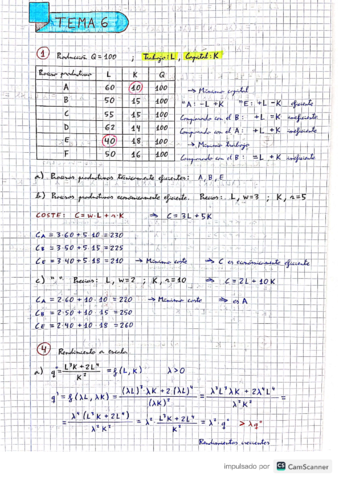 TEMA 6
① Producción Q=100 ; Trabajo: L, Capital: K
Proceso productivo L K Q
A 60 10 100
B 50 15 100
C 55 15 100
D 62 14 100
E 40 18 100
F 50 16 100
→ Mínimo capital
"A: -L +K "E: +L -K eficiente
Comparando con el B: +L =K ineficiente
Comparando con el A: +L +K ineficiente
→ Mínimo trabajo
Comparando con el B: =L +K ineficiente
a) Procesos productivos técnicamente eficientes: A, B, E
b) Procesos productivos económicamente eficiente. Precios: L, w=3 ; K, r=5
COSTE: C = w·L + r·K ⇒ C = 3L + 5K
CA = 3·60 + 5·10 = 230
CB = 3·50 + 5·15 = 225
CE = 3·40 + 5·18 = 210 → Mínimo coste ⇒ C es económicamente eficiente
c) "." Precios: L, w=2 ; K, r=10 ⇒ C = 2L + 10K
CA = 2·60 + 10·10 = 220 → Mínimo coste ⇒ es A
CB = 2·50 + 10·15 = 250
CE = 2·40 + 10·18 = 260
④ Rendimiento a escala
a) q = L³K + 2L⁴ / K² = f(L, K) λ>0
q' = f(λL, λK) = (λL)³λK + 2(λL)⁴ / (λK)² = λ³L³λK + 2λ⁴L⁴ / λ²K² =
= λ⁴(L³K + 2L⁴) / λ²K² = λ² · L³K + 2L⁴ / K² = λ²q > λq
Rendimientos crecientes
impulsado por CS CamScanner